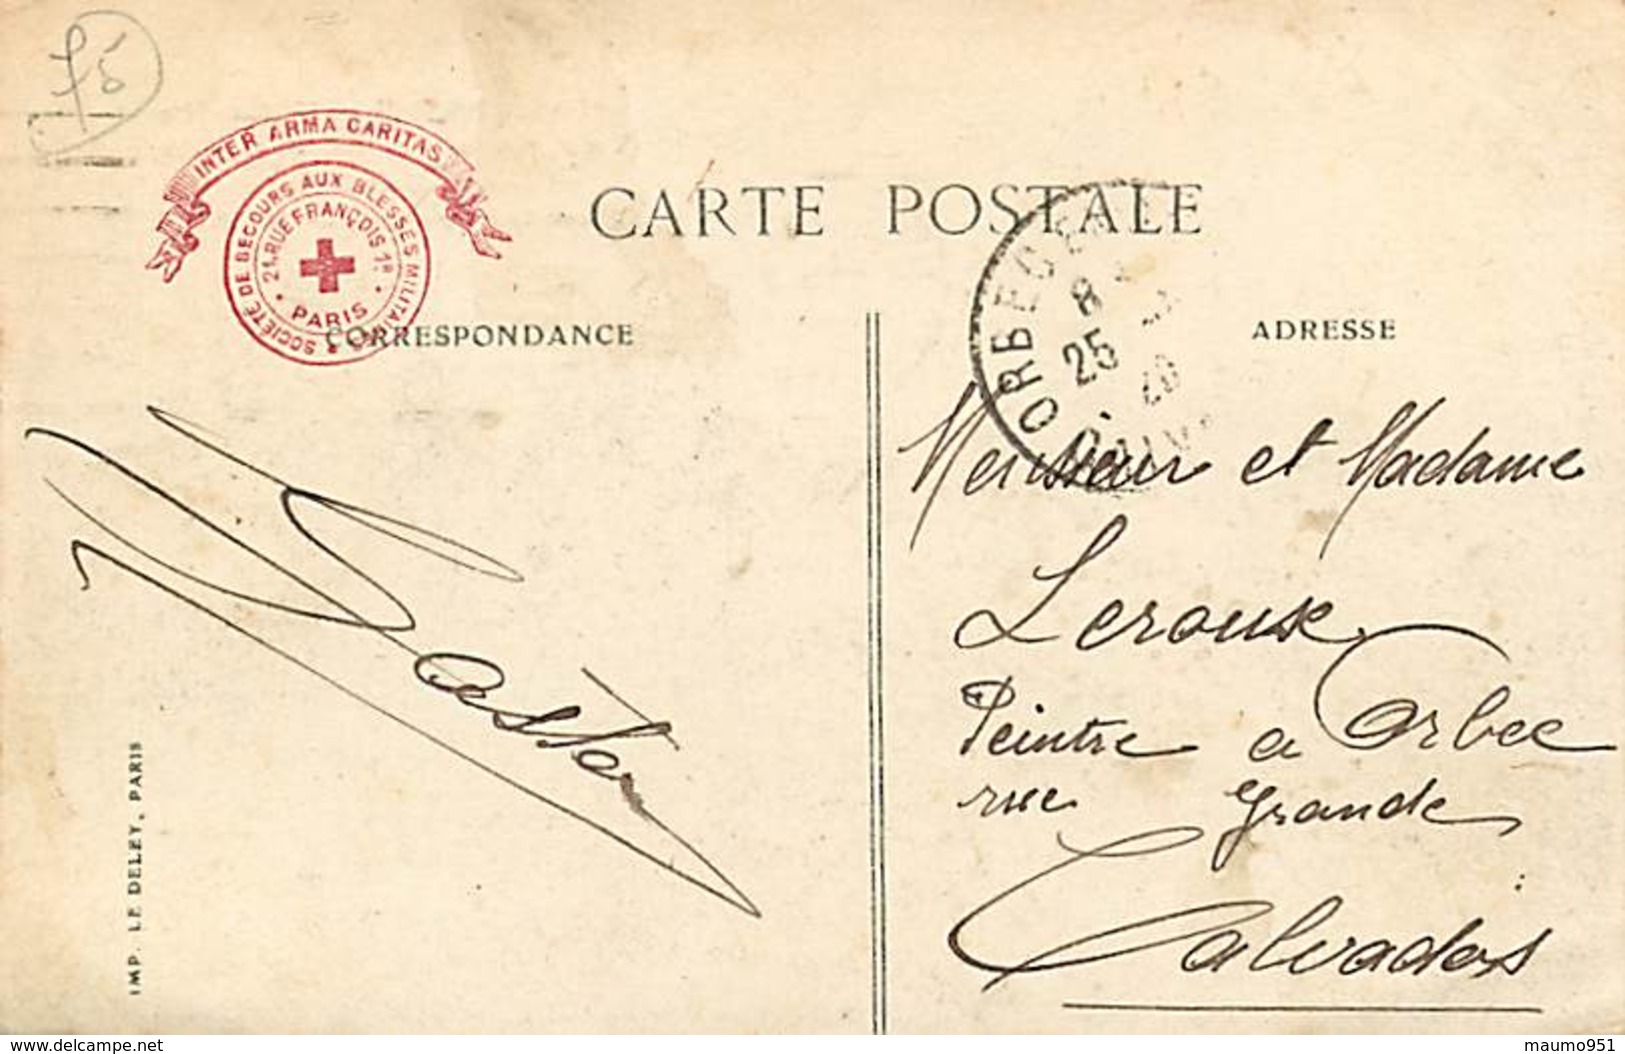 75
INTER ARMA CARITAS
SOCIÉTÉ DE SECOURS AUX BLESSÉS MILITAIRES
21, RUE FRANÇOIS 1ER
PARIS
CARTE POSTALE
CORRESPONDANCE
ADRESSE
ORBEC
8
25
Gaston
Monsieur et Madame
Leroux
Peintre a Orbec
rue Grande
Calvados
IMP. LE DELEY, PARIS
delcampe.net
maumo951